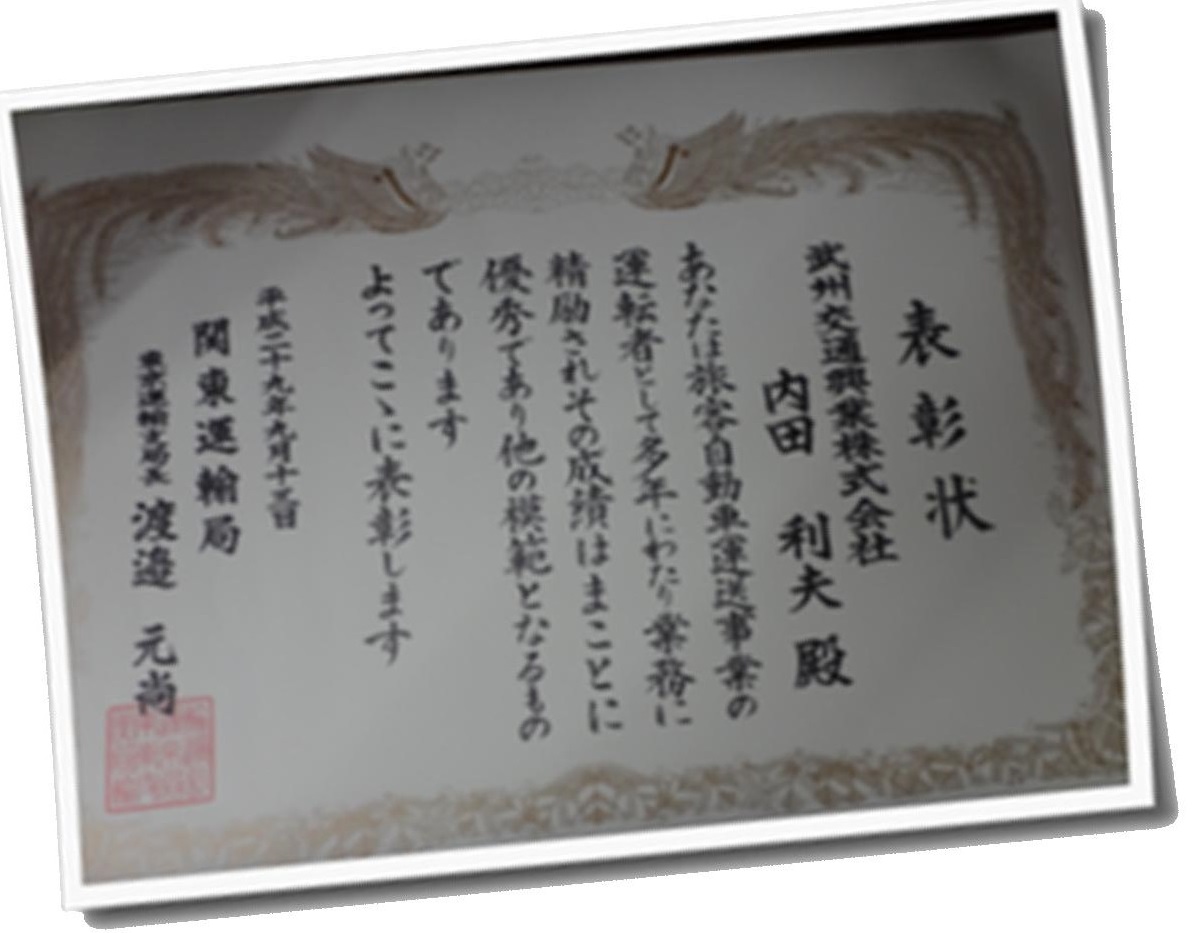 表彰状
武州交通興業株式会社
内田 利夫 殿
あなたは旅客自動車運送事業の
運転者として多年にわたり業務に
精励されその成績はまことに
優秀であり他の模範となるもの
であります
よってこゝに表彰します
平成二十九年九月十三日
関東運輸局
東京運輸支局長 渡邉 元尚